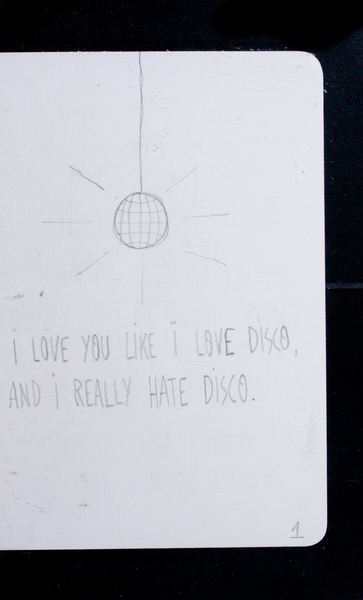 i LOVE YOU LiKE i LOVE DiSCO,
AND i REALLY HATE DiSCO.
1